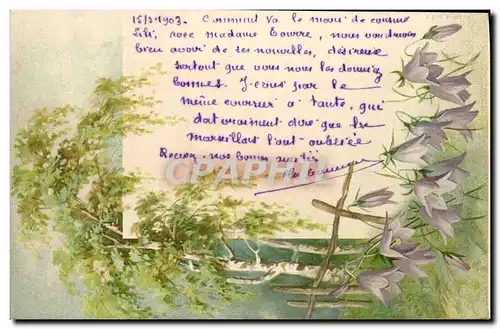 15/3 1903. Comment va le mari de cousine
Lili, avec madame Bourre, nous voudrions
bien avoir de ses nouvelles, désireux
surtout que vous nous les donniez
bonnes. J'écris par le
même courrier à tante, qui
doit vraiment dire que les
marseillais l'ont oubliée
Recevez nos bonnes amitiés
Carte Postale